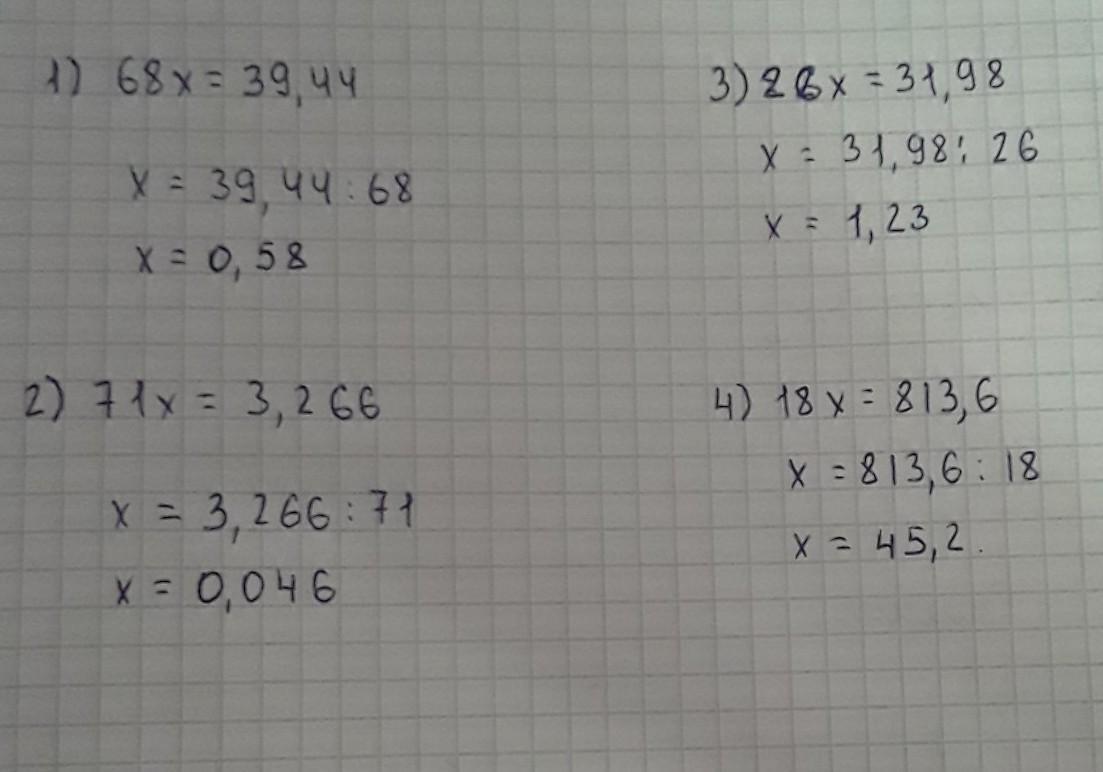 1) 68x = 39,44
x = 39,44 : 68
x = 0,58
2) 71x = 3,266
x = 3,266 : 71
x = 0,046
3) 26x = 31,98
x = 31,98 : 26
x = 1,23
4) 18x = 813,6
x = 813,6 : 18
x = 45,2.